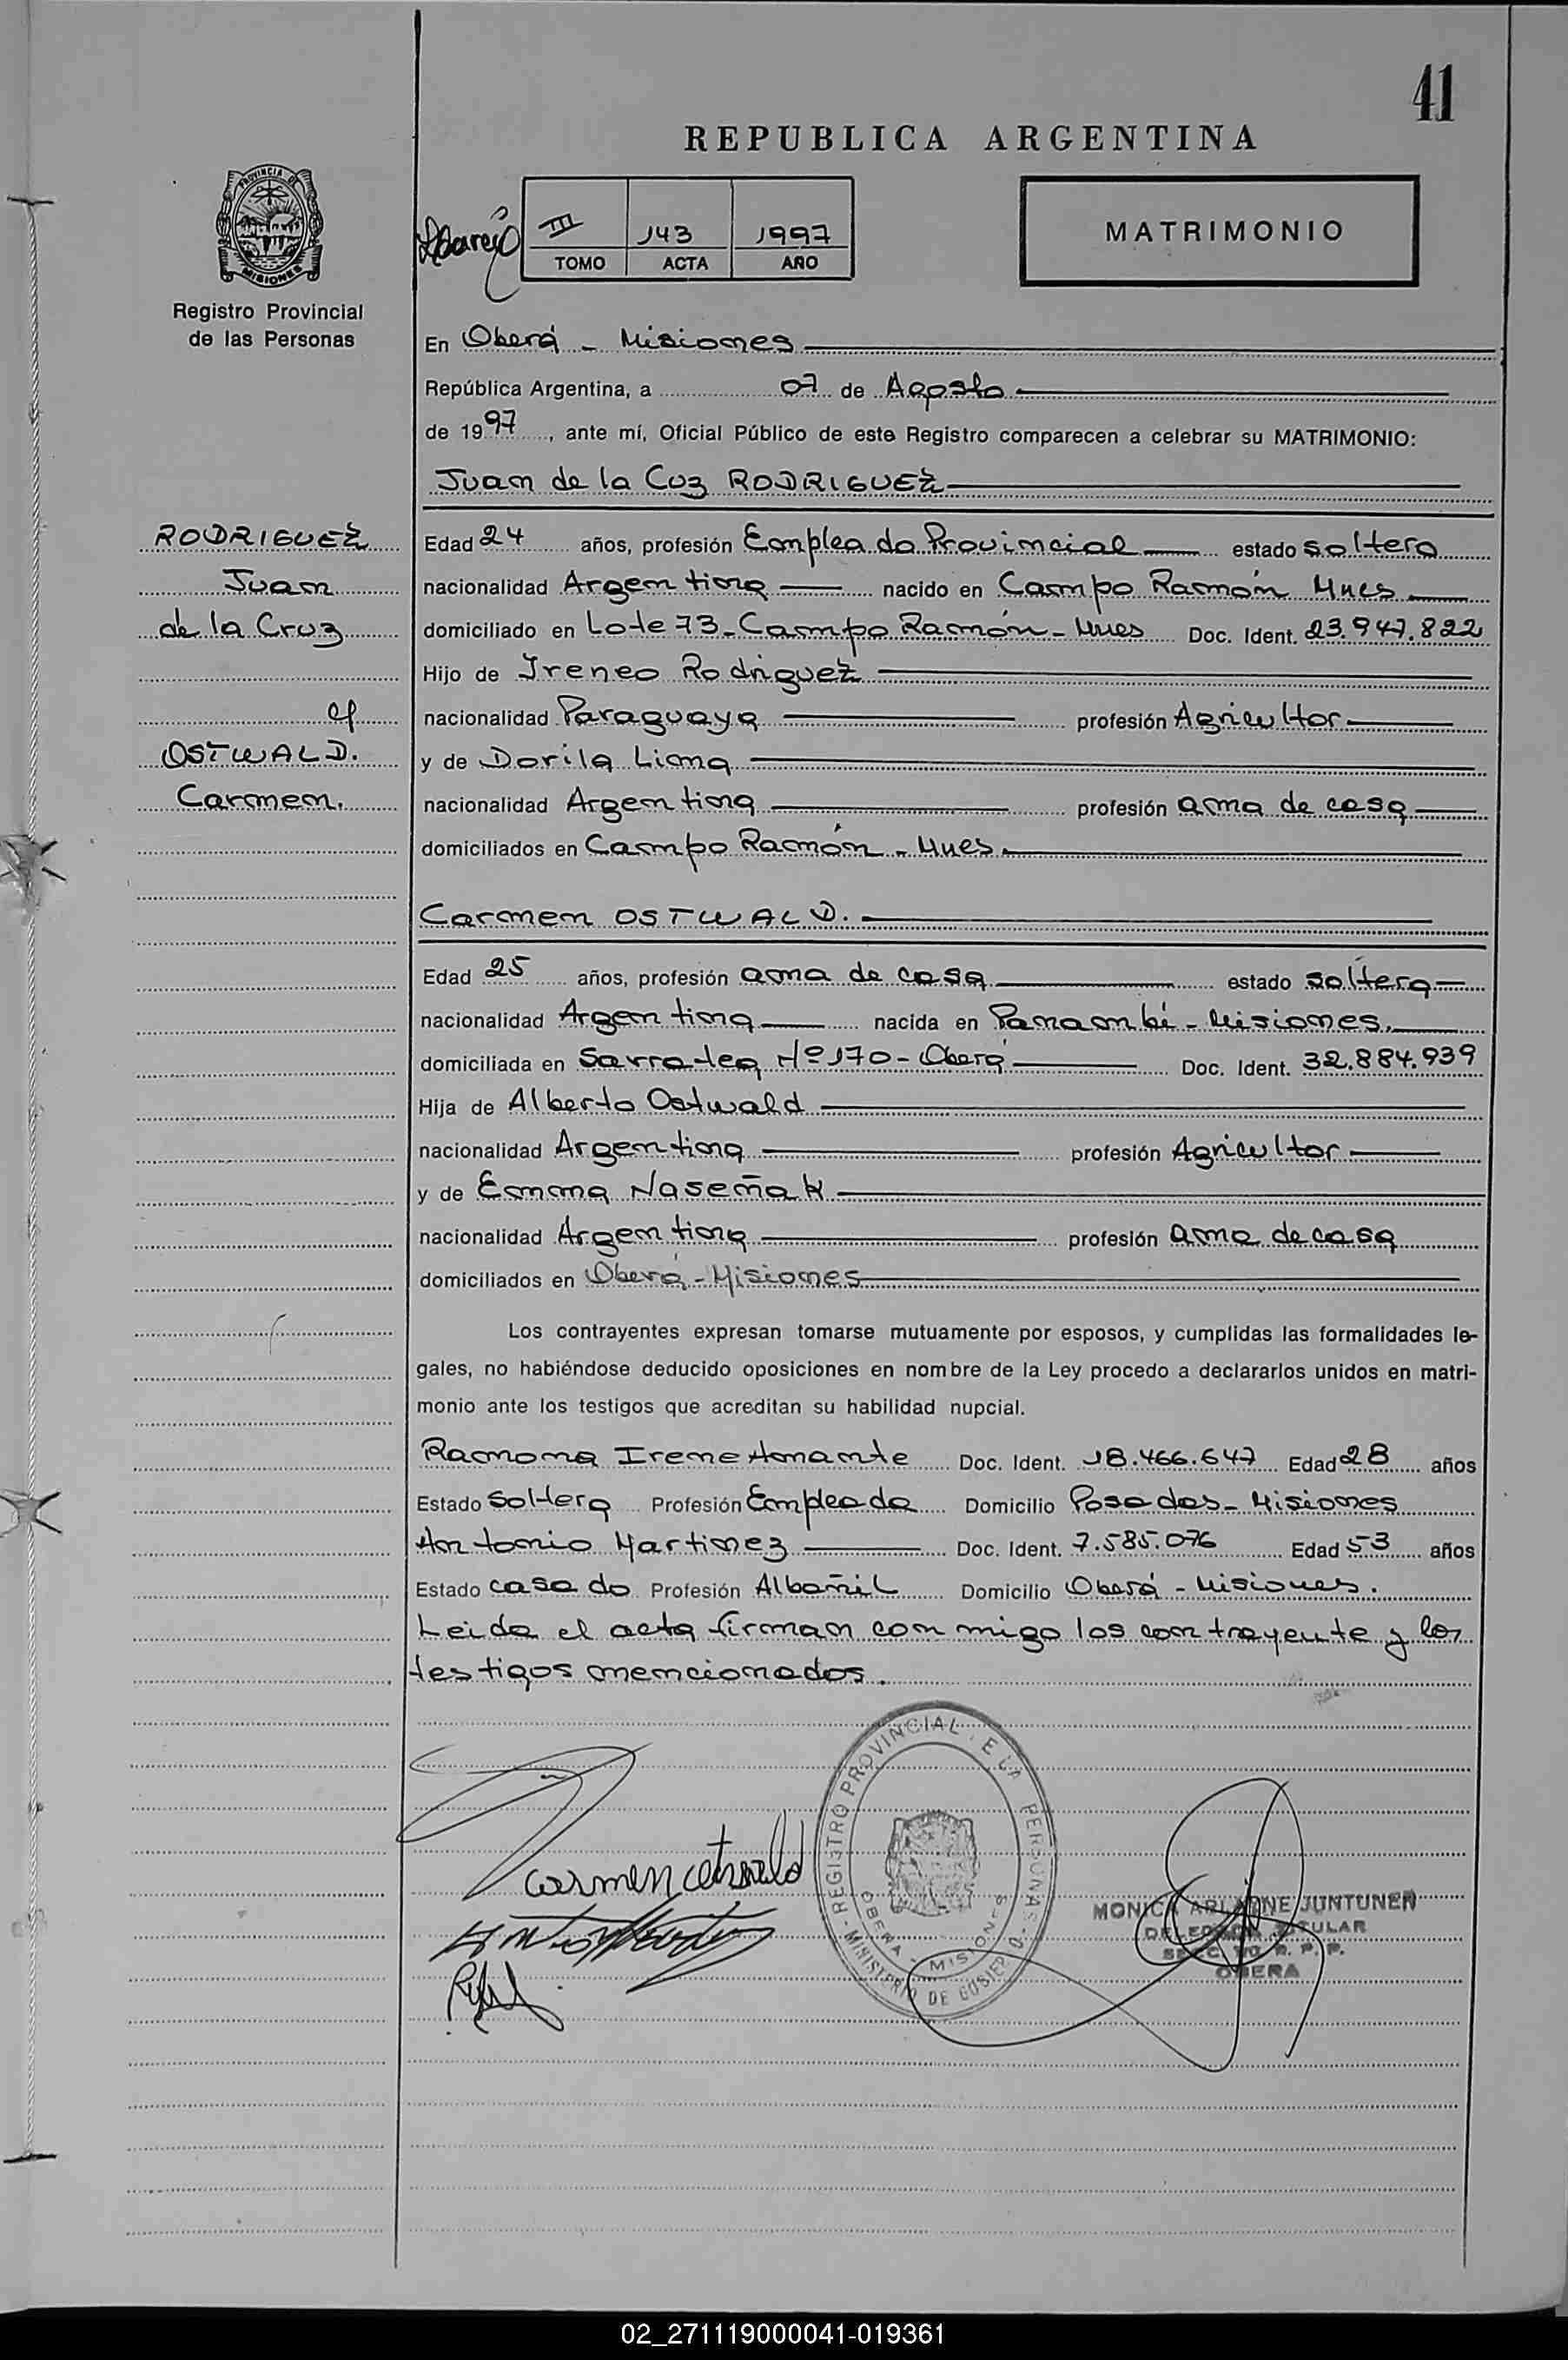 41
REPUBLICA ARGENTINA
III 143 1997
TOMO ACTA AÑO
MATRIMONIO
PROVINCIA DE
MISIONES
Registro Provincial
de las Personas
En Oberá - Misiones
República Argentina, a 07 de Agosto
de 1997, ante mí, Oficial Público de este Registro comparecen a celebrar su MATRIMONIO:
Juan de la Cuz RODRIGUEZ
RODRIGUEZ
Juan
de la Cruz
c/
OSTWALD.
Carmen.
Edad 24 años, profesión Empleado Provincial estado soltero
nacionalidad Argentina nacido en Campo Ramón Mnes
domiciliado en Lote 73-Campo Ramón-Mnes Doc. Ident. 23.947.822
Hijo de Ireneo Rodriguez
nacionalidad Paraguaya profesión Agricultor
y de Dorila Lima
nacionalidad Argentina profesión ama de casa
domiciliados en Campo Ramón - Mnes.
Carmen OSTWALD.
Edad 25 años, profesión ama de casa estado soltera
nacionalidad Argentina nacida en Panambí - Misiones.
domiciliada en Sarratea Nº 170 - Oberá Doc. Ident. 32.884.939
Hija de Alberto Ostwald
nacionalidad Argentina profesión Agricultor
y de Emma Naseñak
nacionalidad Argentina profesión ama de casa
domiciliados en Oberá - Misiones
Los contrayentes expresan tomarse mutuamente por esposos, y cumplidas las formalidades le-
gales, no habiéndose deducido oposiciones en nombre de la Ley procedo a declararlos unidos en matri-
monio ante los testigos que acreditan su habilidad nupcial.
Ramona Irene Amante Doc. Ident. 18.466.647 Edad 28 años
Estado Soltera Profesión Empleada Domicilio Posadas - Misiones
Antonio Martinez Doc. Ident. 7.585.076 Edad 53 años
Estado casado Profesión Albañil Domicilio Oberá - Misiones.
Leida el acta firman con migo los contrayente y los
testigos mencionados.
REGISTRO PROVINCIAL DE LA PERSONAS
MINISTERIO DE GOBIERNO
OBERA - MISIONES
Carmen
MONICA ARIADNE JUNTUNEN
TITULAR
R. P. P.
OBERA
02_271119000041-019361